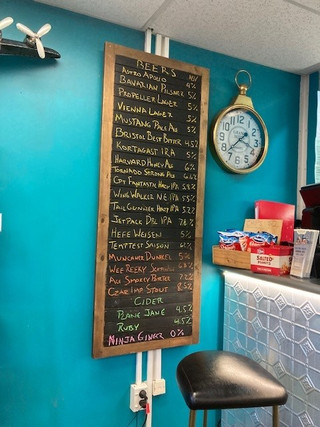 BEERS
ASTRO APOLLO ABV 4%
BAVARIAN PILSNER 5%
PROPELLER LAGER 5%
VIENNA LAGER 5%
MUSTANG PALE ALE 5%
BRISTOL BEST BITTER 4.5%
KORTAGAST IRA 5%
HARVARD HONEY ALE 6%
TORNADO STRONG ALE
FANTASTIC HAZY IPA
WING WALKER NE IPA
TAIL GUNNER HAZY IPA
JET PACK DBL IPA 7.8%
HEFE WEISEN 5%
TEMPTEST SAISON
MUNCHNER DUNKEL 5%
WEE REEKY
ALE SMOKEY PORTER
CZAR IMP STOUT 8.5%
CIDER
PLAINE JANE 4.5%
RUBY 4.5%
NINJA GINGER 0%
SALTED